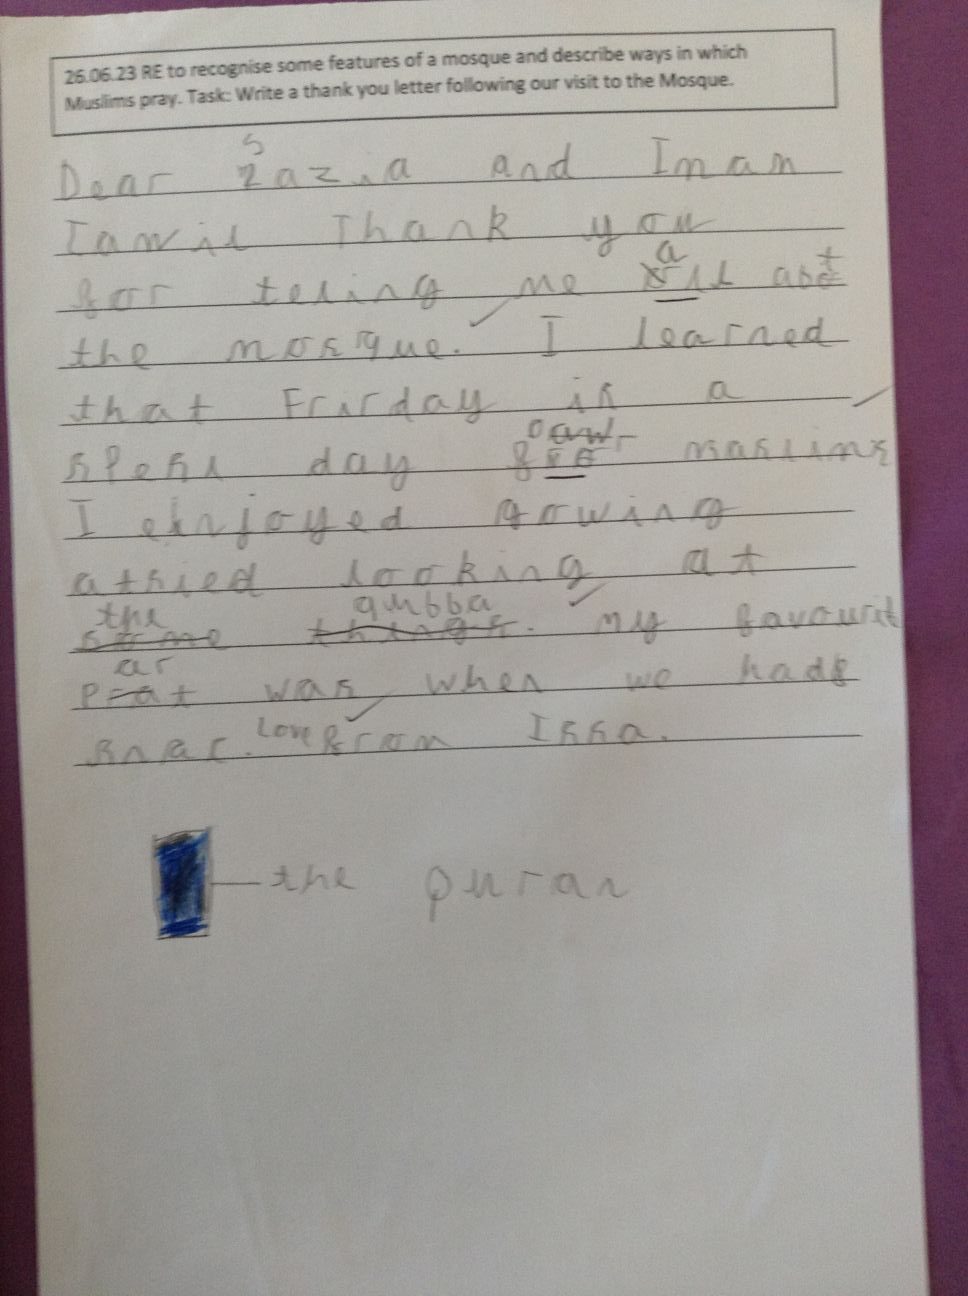 26.06.23 RE to recognise some features of a mosque and describe ways in which
Muslims pray. Task: Write a thank you letter following our visit to the Mosque.
Dear Sazia and Imam
Thank you
for teling me all abot
the mosque. I learned
that Frirday is a
speshl day for maslims
I einjoyed gowing
athied looking at
the qubba. my favourit
part was when we hads
snac. Love from Issa.
the Quran